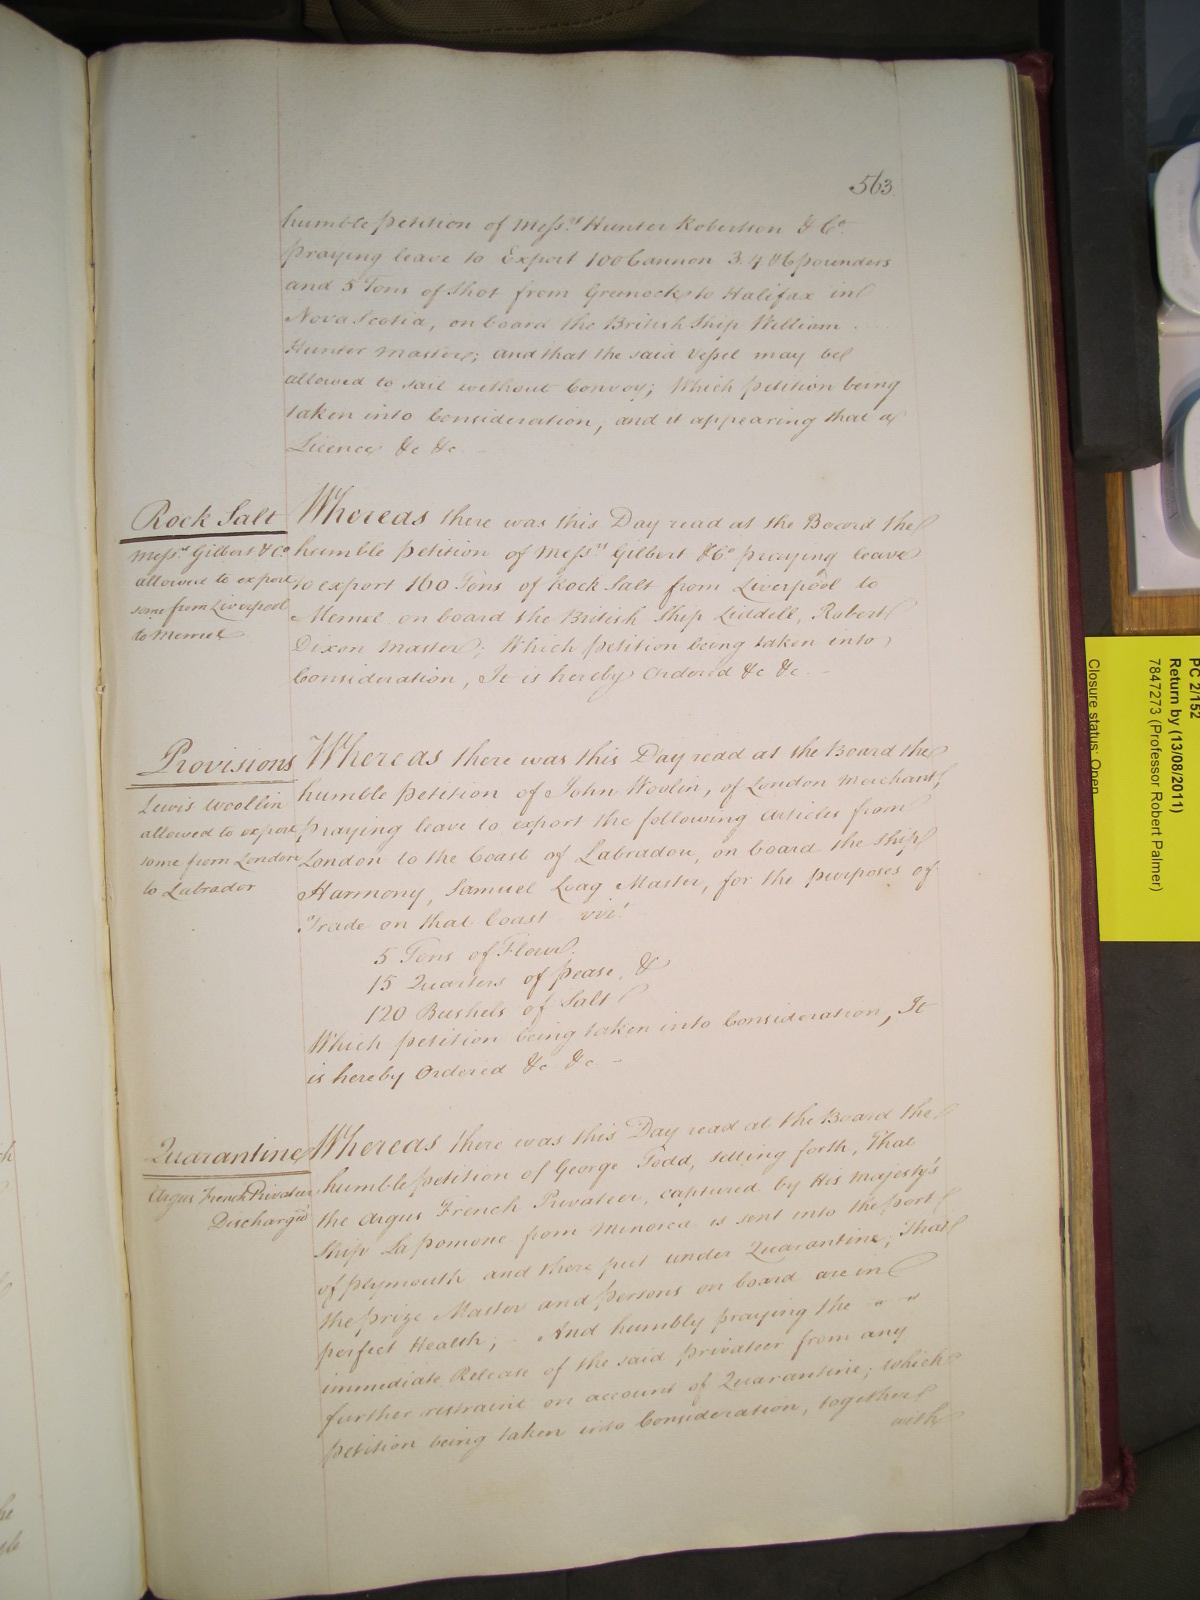 563
humble petition of Messrs. Hunter Robertson & Co.
praying leave to Export 100 Cannon 3. 4 & 6 pounders
and 5 Tons of Shot from Greenock to Halifax in
Nova Scotia, on board the British Ship William
Hunter Master; and that the said Vessel may be
allowed to sail without Convoy; Which petition being
taken into Consideration, and it appearing that a
Licence &c &c
Rock Salt
Messrs. Gilbert & Co.
allowed to export
some from Liverpool
to Memel
Whereas there was this Day read at the Board the
humble petition of Messrs. Gilbert & Co. praying leave
to export 160 Tons of Rock Salt from Liverpool to
Memel on board the British Ship Liddell, Robert
Dixon Master; Which petition being taken into
Consideration, It is hereby Ordered &c &c
Provisions
Lewis Woollin
allowed to export
some from London
to Labrador
Whereas there was this Day read at the Board the
humble petition of John Woolin, of London Merchant,
praying leave to export the following Articles from
London to the Coast of Labradon, on board the Ship
Harmony, Samuel Master, for the purposes of
Trade on that Coast vizt.
5 Tons of Flour
15 Quarters of pease, &
120 Bushels of Salt
Which petition being taken into Consideration, It
is hereby Ordered &c &c
Quarantine
Argus French Privateer
Discharged
Whereas there was this Day read at the Board the
humble petition of George Todd, setting forth, That
the Argus French Privateer, captured by His Majesty's
Ship La pomone from Minorca is sent into the port
of plymouth and there put under Quarantine; That
the prize Master and persons on board are in
perfect Health; And humbly praying the
immediate Release of the said privateer from any
further restraint on account of Quarantine; which
petition being taken into Consideration, together
with
PC 2/152
Return by (13/08/2011)
7847273 (Professor Robert Palmer)
Closure status: Open